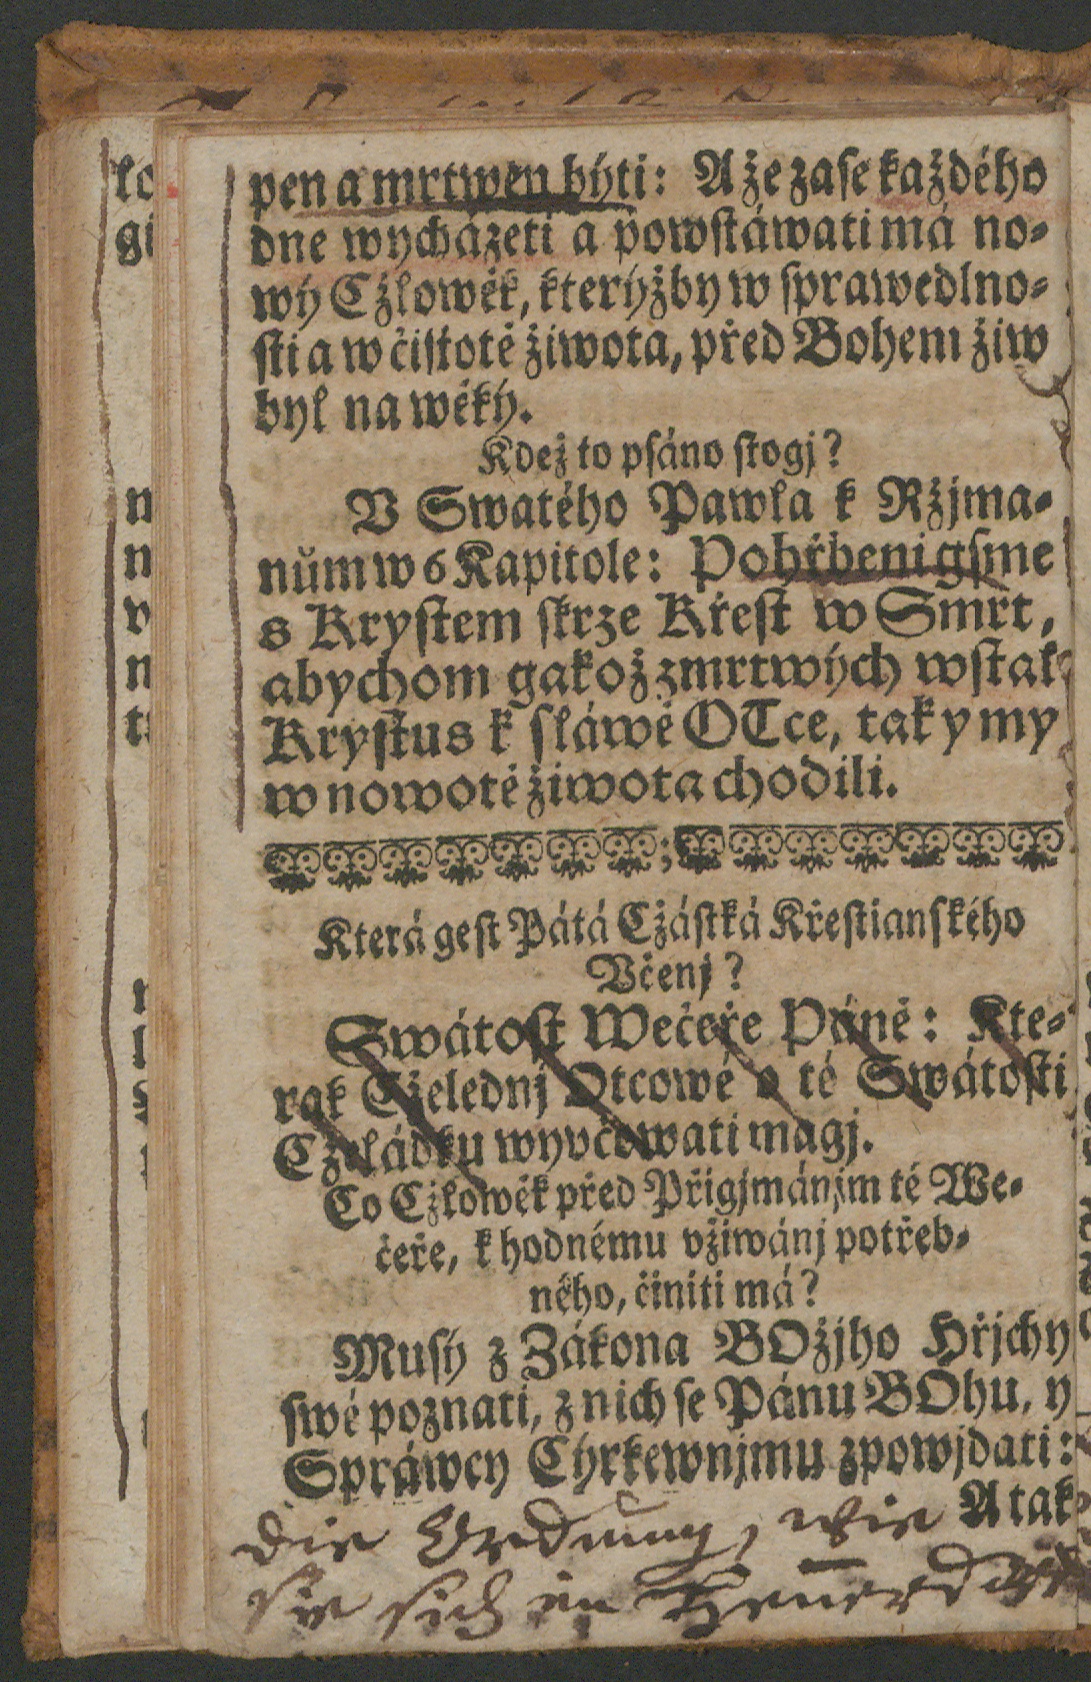 pen a mrtwen býti: A že zase každého
dne wycházeti a powstáwati má no-
wý Cžlowěk, kterýžby w sprawedlno-
sti a w čistotě žiwota, před Bohem žiw
byl na wěky̆.
Kdež to psáno stogj?
V Swatého Pawla k Ržjma-
nům w 6 Kapitole: Pohřbeni gsme
s Krystem skrze Křest w Smrt,
abychom gakož z mrtwých wstal
Krystus k sláwě OTce, tak y my
w nowotě žiwota chodili.
Která gest Pátá Cžástká Křestianského
Včenj?
Swátost Wečeře Páně: Kte-
rak Cželednj Otcowé o té Swátosti
Cželádku wyvčowati magj.
Co Cžlowěk před Přigjmánjm té We-
čeře, k hodnému vžiwánj potřeb-
ného, činiti má?
Musý z Zákona BOžjho Hřjchy
swé poznati, z nich se Pánu BOhu, y
Spráwcy Cýrkewnjmu zpowjdati:
A tak
die Ordnung, wie
sie sich in